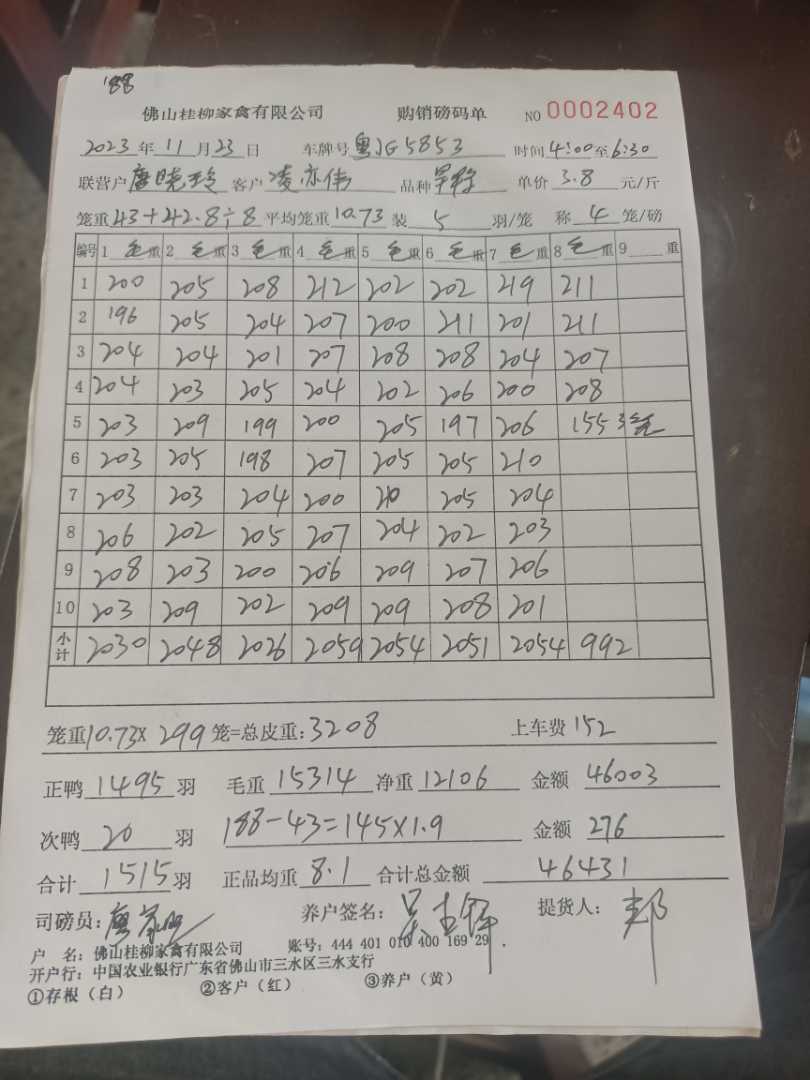 188
佛山桂柳家禽有限公司 购销磅码单 NO 0002402
2023年11月23日 车牌号粤JG5853 时间4:00至6:30
联营户唐晓玲 客户凌亦伟 品种 单价3.8元/斤
笼重43+42.8÷8 平均笼重10.73 装5羽/笼 称4笼/磅
编号 1毛重 2毛重 3毛重 4毛重 5毛重 6毛重 7毛重 8毛重 9 重
1 200 205 208 212 202 202 219 211
2 196 205 204 207 200 211 201 211
3 204 204 201 207 208 208 204 207
4 204 203 205 204 202 206 200 208
5 203 209 199 200 205 197 206 155 3笼
6 203 205 198 207 205 205 210
7 203 203 204 200 210 205 204
8 206 202 205 207 204 202 203
9 208 203 200 206 209 207 206
10 203 209 202 209 209 208 201
小计 2030 2048 2026 2059 2054 2051 2054 992
笼重10.73×299笼=总皮重:3208 上车费152
正鸭1495羽 毛重15314 净重12106 金额46003
次鸭20羽 188-43=145×1.9 金额276
合计1515羽 正品均重8.1 合计总金额46431
司磅员: 养户签名: 提货人:
户 名:佛山桂柳家禽有限公司 账号:444 401 010 400 169 29
开户行:中国农业银行广东省佛山市三水区三水支行
①存根(白) ②客户(红) ③养户(黄)